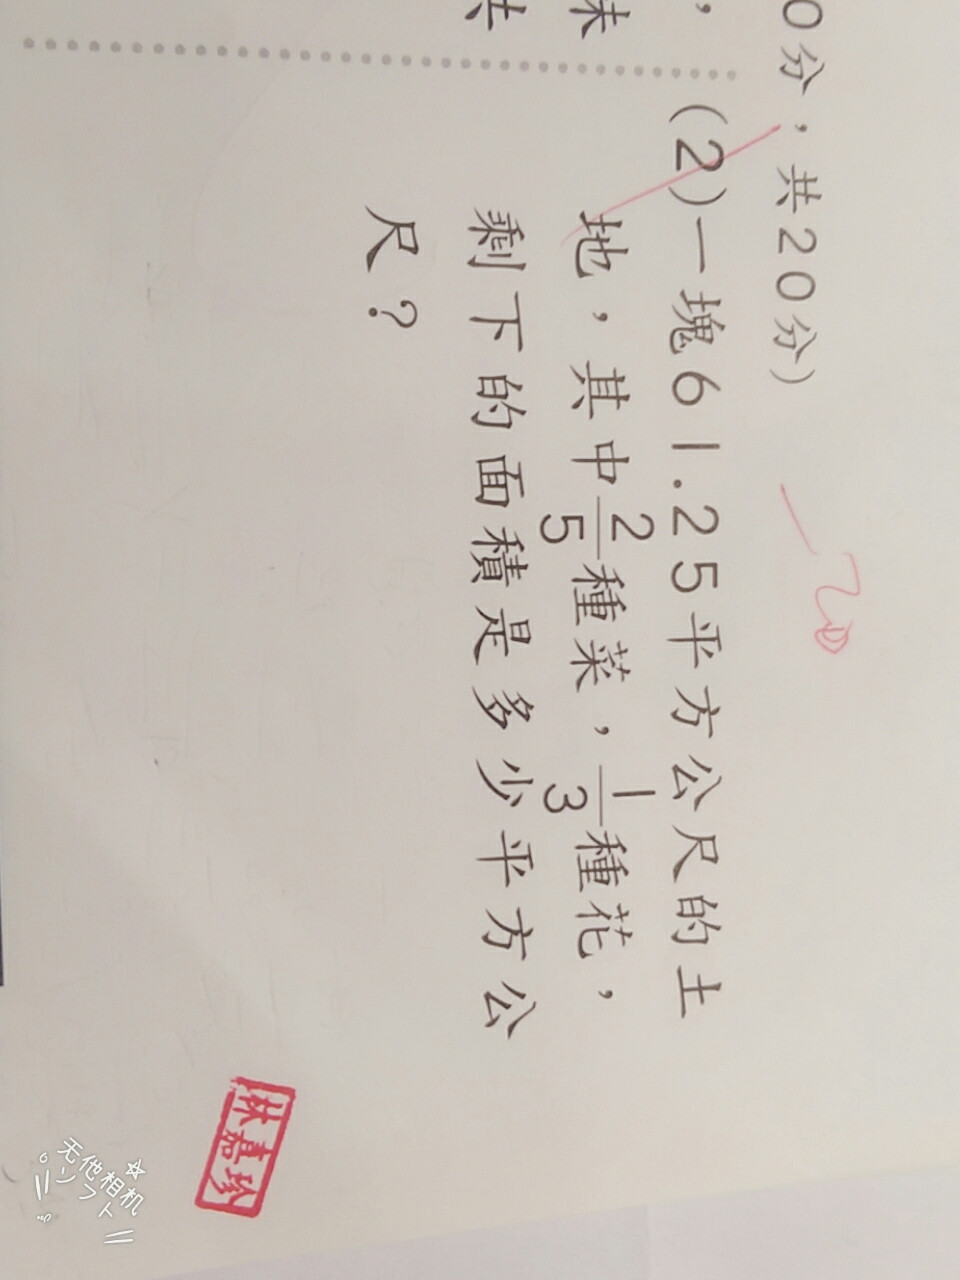 0分，共20分）
(2)一塊61.25平方公尺的土
地，其中2/5種菜，1/3種花，
剩下的面積是多少平方公
尺？
，
妹
共
林嘉珍
无他相机